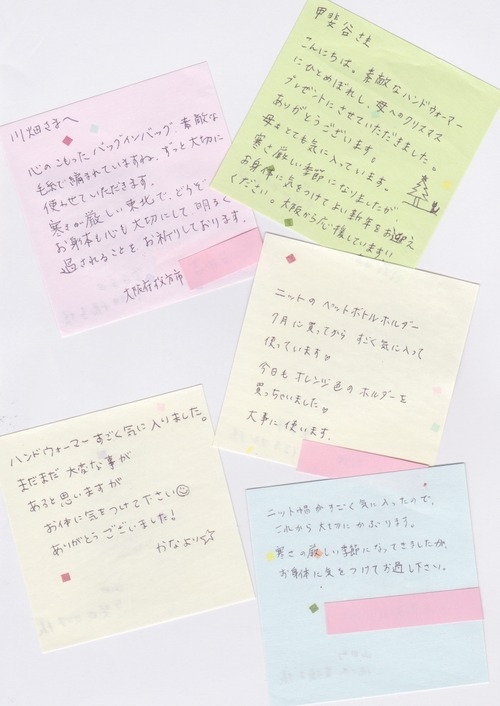 川畑さまへ
心のこもったバッグインバッグ、素敵な
毛糸で編まれていますね。ずっと大切に
使わせていただきます。
寒さが厳しい東北で、どうぞ
お身体も心も大切にして、明るく
過されることをお祈りしております。
大阪府枚方市
甲斐谷さま
こんにちは。素敵なハンドウォーマー
にひとめぼれし、母へのクリスマス
プレゼントにさせていただきました。
ありがとうございます。
母もとても気に入っています。
寒さ厳しい季節になりましたが、
お身体に気をつけてよい新年をお迎え
ください。大阪から応援しています!!
ニットのペットボトルホルダー
7月に買ってから すごく気に入って
使っています
今日も オレンジ色の ホルダーを
買っちゃいました
大事に使います。
ハンドウォーマーすごく気に入りました。
まだまだ 大変な事が
あると思いますが
お体に気をつけて下さい
ありがとうございました!
かなより☆
ニット帽がすごく気に入ったので、
これから大切にかぶります。
寒さの厳しい季節になってきましたが、
お身体に気をつけてお過し下さい。